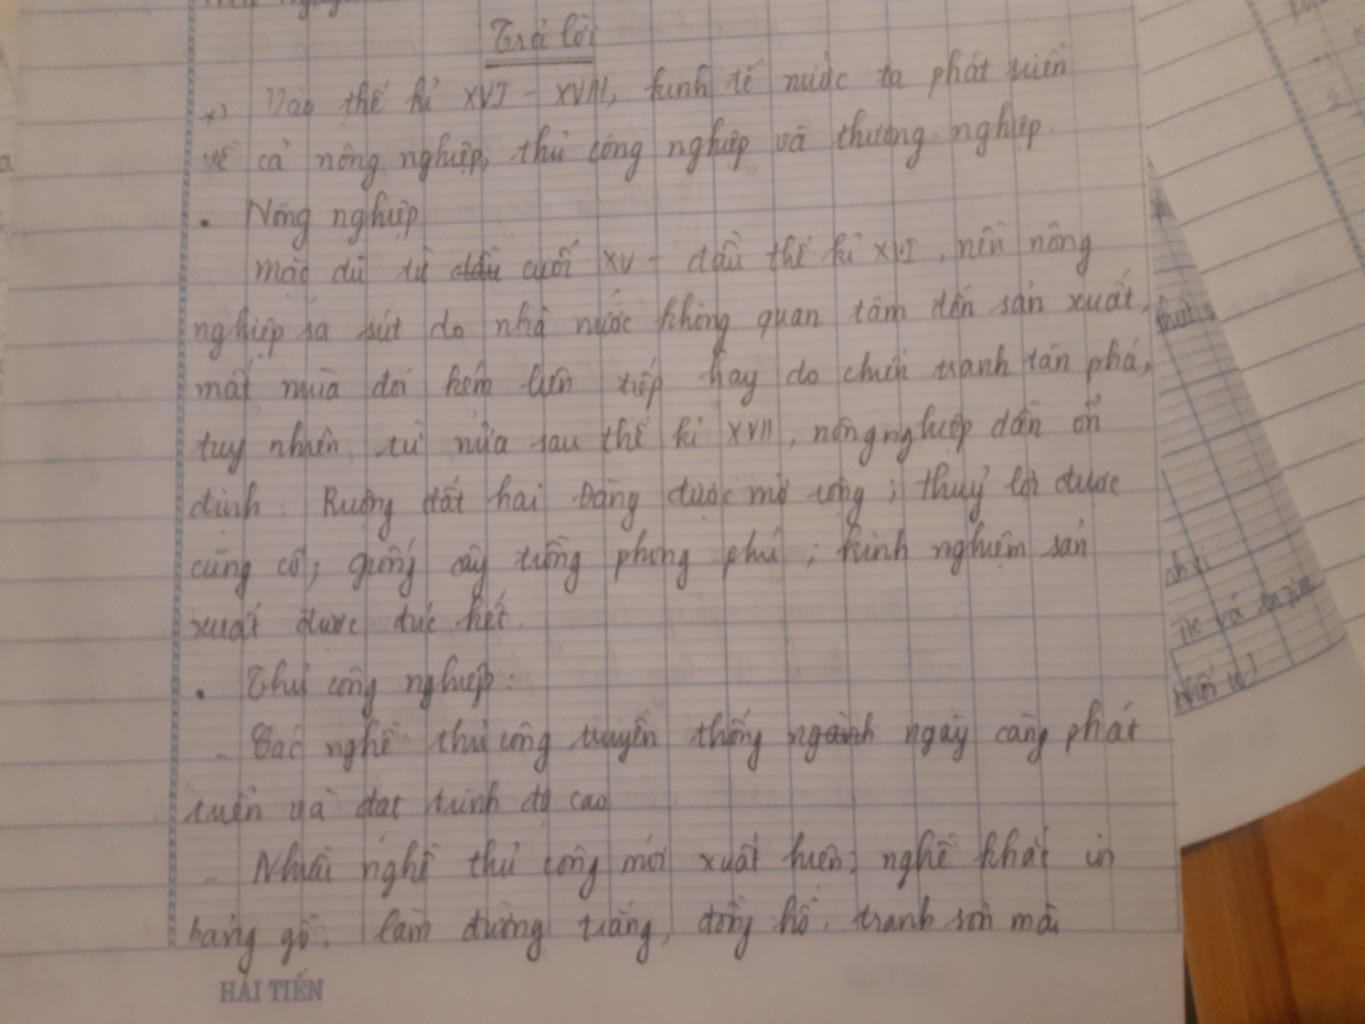 Trả lời
*) Vào thế kỉ XVI - XVIII, kinh tế nước ta phát triển
về cả nông nghiệp, thủ công nghiệp và thương nghiệp.
• Nông nghiệp
Mặc dù từ cuối XV - đầu thế kỉ XVI, nền nông
nghiệp sa sút do nhà nước không quan tâm đến sản xuất,
mất mùa đói kém liên tiếp hay do chiến tranh tàn phá,
tuy nhiên từ nửa sau thế kỉ XVII, nông nghiệp dần ổn
định. Ruộng đất hai Đàng được mở rộng; thuỷ lợi được
củng cố; giống cây trồng phong phú; kinh nghiệm sản
xuất được đúc kết.
• Thủ công nghiệp:
- Các nghề thủ công truyền thống ngày càng phát
triển và đạt trình độ cao
- Nhiều nghề thủ công mới xuất hiện: nghề khắc in
bảng gỗ, làm đường trắng, đồng hồ, tranh sơn mài
HẢI TIẾN